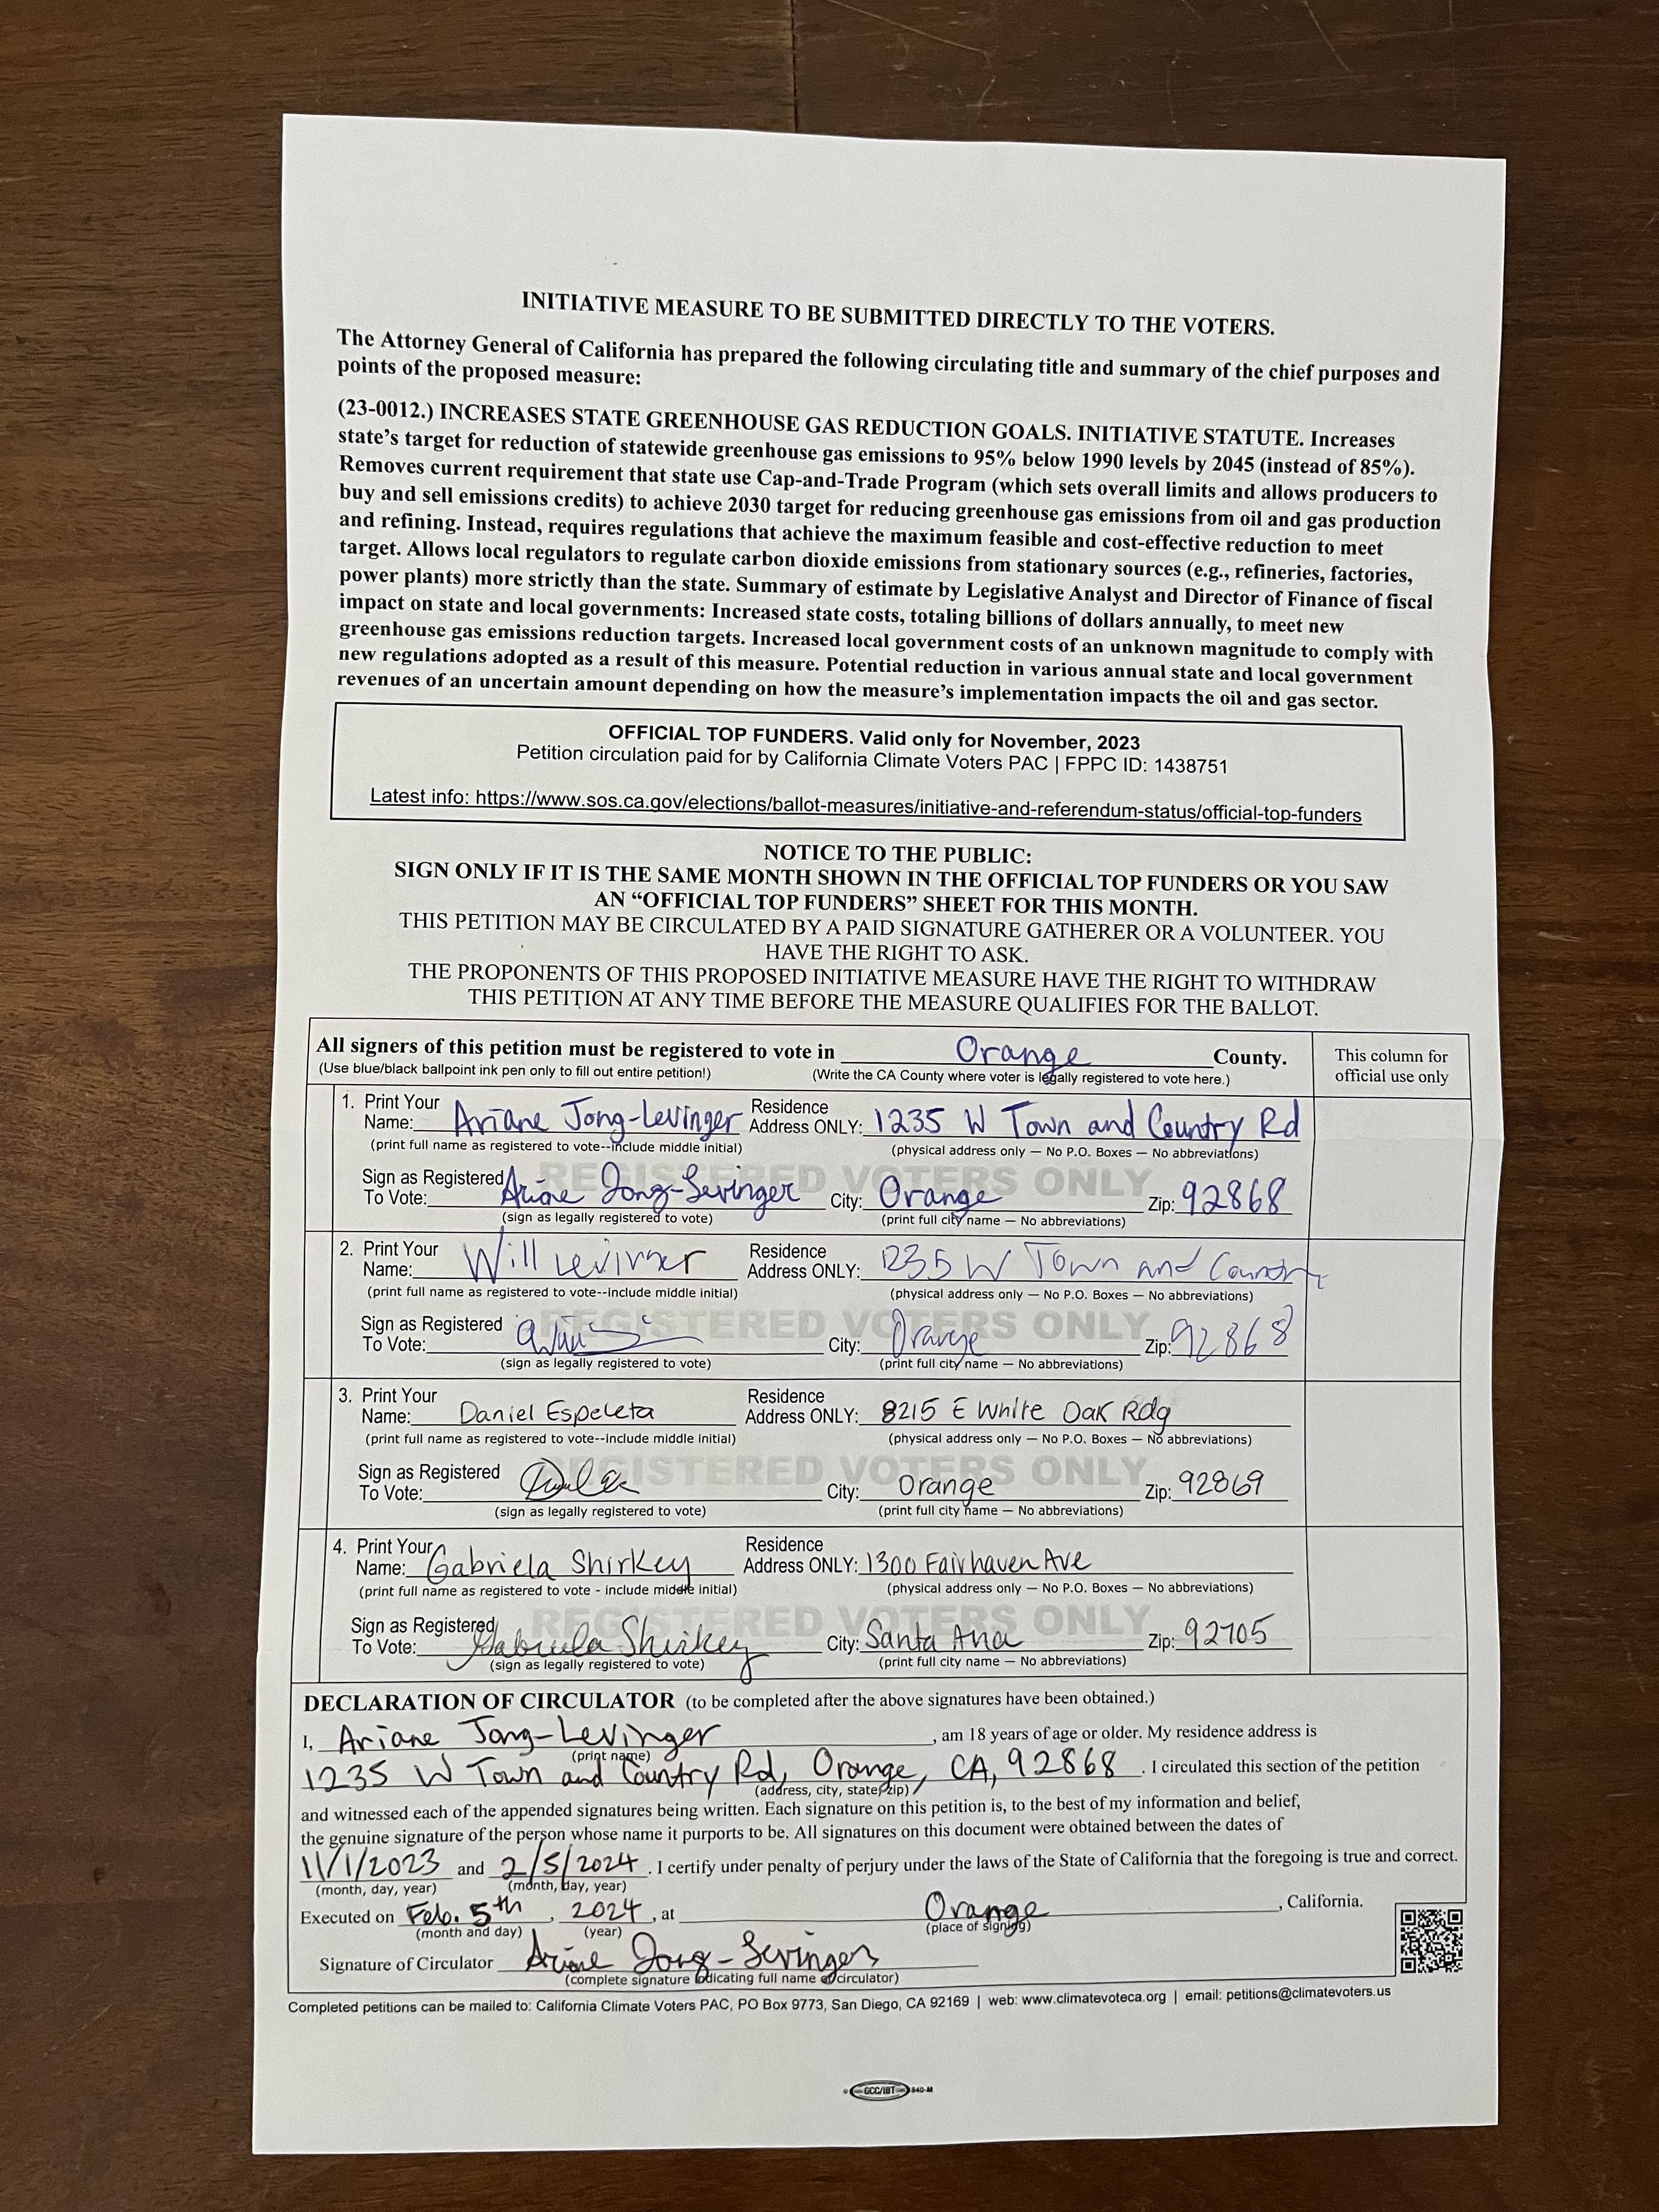 INITIATIVE MEASURE TO BE SUBMITTED DIRECTLY TO THE VOTERS.
The Attorney General of California has prepared the following circulating title and summary of the chief purposes and
points of the proposed measure:
(23-0012.) INCREASES STATE GREENHOUSE GAS REDUCTION GOALS. INITIATIVE STATUTE. Increases
state's target for reduction of statewide greenhouse gas emissions to 95% below 1990 levels by 2045 (instead of 85%).
Removes current requirement that state use Cap-and-Trade Program (which sets overall limits and allows producers to
buy and sell emissions credits) to achieve 2030 target for reducing greenhouse gas emissions from oil and gas production
and refining. Instead, requires regulations that achieve the maximum feasible and cost-effective reduction to meet
target. Allows local regulators to regulate carbon dioxide emissions from stationary sources (e.g., refineries, factories,
power plants) more strictly than the state. Summary of estimate by Legislative Analyst and Director of Finance of fiscal
impact on state and local governments: Increased state costs, totaling billions of dollars annually, to meet new
greenhouse gas emissions reduction targets. Increased local government costs of an unknown magnitude to comply with
new regulations adopted as a result of this measure. Potential reduction in various annual state and local government
revenues of an uncertain amount depending on how the measure's implementation impacts the oil and gas sector.
OFFICIAL TOP FUNDERS. Valid only for November, 2023
Petition circulation paid for by California Climate Voters PAC | FPPC ID: 1438751
Latest info: https://www.sos.ca.gov/elections/ballot-measures/initiative-and-referendum-status/official-top-funders
NOTICE TO THE PUBLIC:
SIGN ONLY IF IT IS THE SAME MONTH SHOWN IN THE OFFICIAL TOP FUNDERS OR YOU SAW
AN “OFFICIAL TOP FUNDERS” SHEET FOR THIS MONTH.
THIS PETITION MAY BE CIRCULATED BY A PAID SIGNATURE GATHERER OR A VOLUNTEER. YOU
HAVE THE RIGHT TO ASK.
THE PROPONENTS OF THIS PROPOSED INITIATIVE MEASURE HAVE THE RIGHT TO WITHDRAW
THIS PETITION AT ANY TIME BEFORE THE MEASURE QUALIFIES FOR THE BALLOT.
All signers of this petition must be registered to vote in Orange County.
(Use blue/black ballpoint ink pen only to fill out entire petition!) (Write the CA County where voter is legally registered to vote here.)
This column for
official use only
1. Print Your Name: Ariane Jong-Levinger Residence Address ONLY: 1235 W Town and Country Rd
(print full name as registered to vote--include middle initial) (physical address only — No P.O. Boxes — No abbreviations)
REGISTERED VOTERS ONLY
Sign as Registered To Vote: Ariane Jong-Levinger City: Orange Zip: 92868
(sign as legally registered to vote) (print full city name — No abbreviations)
2. Print Your Name: Will Levinger Residence Address ONLY: 1235 W Town and Country
(print full name as registered to vote--include middle initial) (physical address only — No P.O. Boxes — No abbreviations)
REGISTERED VOTERS ONLY
Sign as Registered To Vote: City: Orange Zip: 92868
(sign as legally registered to vote) (print full city name — No abbreviations)
3. Print Your Name: Daniel Espeleta Residence Address ONLY: 8215 E White Oak Rdg
(print full name as registered to vote--include middle initial) (physical address only — No P.O. Boxes — No abbreviations)
REGISTERED VOTERS ONLY
Sign as Registered To Vote: City: Orange Zip: 92869
(sign as legally registered to vote) (print full city name — No abbreviations)
4. Print Your Name: Gabriela Shirkey Residence Address ONLY: 1300 Fairhaven Ave
(print full name as registered to vote - include middle initial) (physical address only — No P.O. Boxes — No abbreviations)
REGISTERED VOTERS ONLY
Sign as Registered To Vote: Gabriela Shirkey City: Santa Ana Zip: 92705
(sign as legally registered to vote) (print full city name — No abbreviations)
DECLARATION OF CIRCULATOR (to be completed after the above signatures have been obtained.)
I, Ariane Jong-Levinger, am 18 years of age or older. My residence address is
(print name)
1235 W Town and Country Rd, Orange, CA, 92868. I circulated this section of the petition
(address, city, state, zip)
and witnessed each of the appended signatures being written. Each signature on this petition is, to the best of my information and belief,
the genuine signature of the person whose name it purports to be. All signatures on this document were obtained between the dates of
11/1/2023 and 2/5/2024. I certify under penalty of perjury under the laws of the State of California that the foregoing is true and correct.
(month, day, year) (month, day, year)
Executed on Feb. 5th, 2024, at Orange, California.
(month and day) (year) (place of signing)
Signature of Circulator Ariane Jong-Levinger
(complete signature indicating full name of circulator)
Completed petitions can be mailed to: California Climate Voters PAC, PO Box 9773, San Diego, CA 92169 | web: www.climatevoteca.org | email: petitions@climatevoters.us
GCC/IBT 840-M